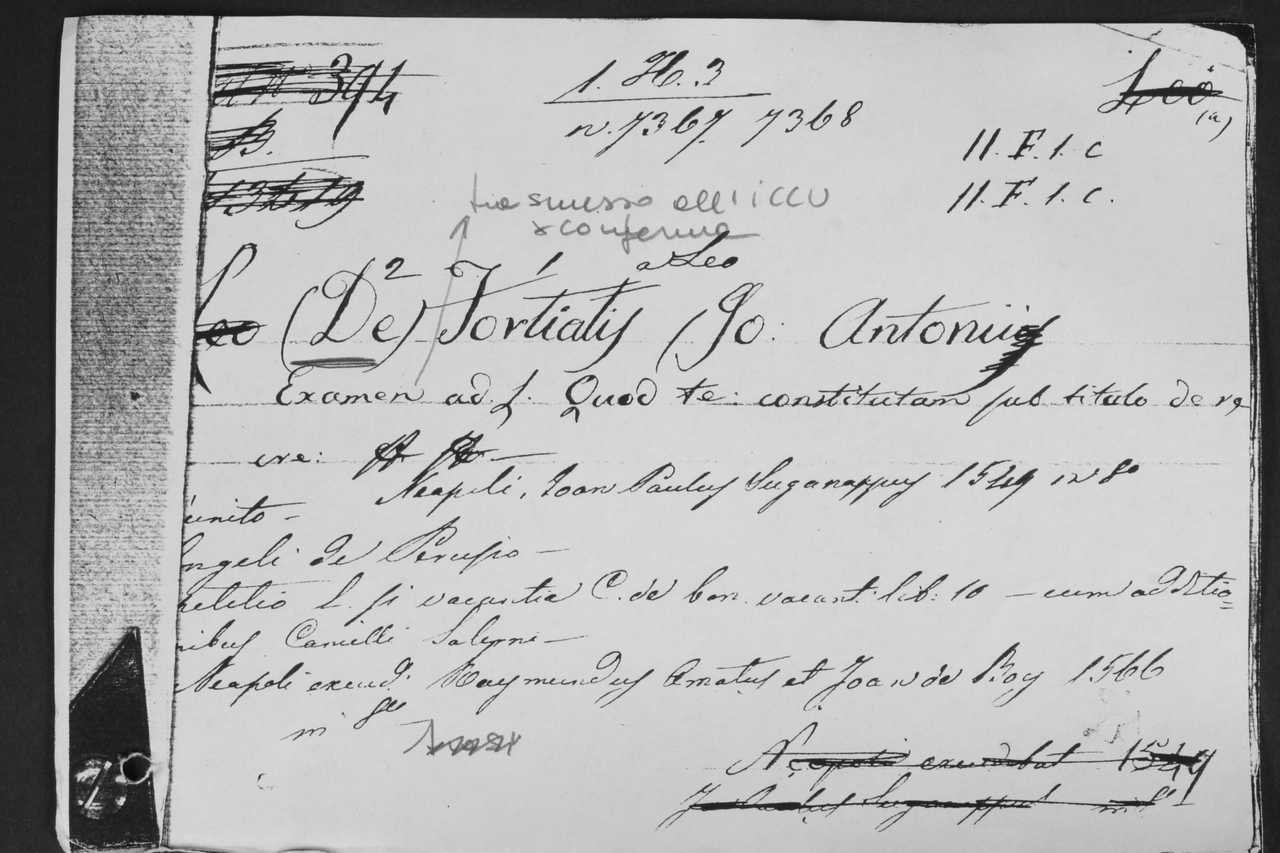 394
1. H. 3
n. 7367. 7368
Leo
(a)
B.
11. F. 1. c
11. F. 1. c.
trasmesso all'ICCU
x conferma
2 1 a Leo
Leo (De) Fortiatis Jo: Antonius
Examen ad l. Quod te: constitutam sub titulo de re
cre: ff
Neapoli, Joan Paulus Suganappus 1549 in 8°
unito -
Angeli de Perusio -
petitio l. si vacantia C. de bon. vacant. lib: 10 - cum additio=
nibus Camilli Salerni -
Neapoli excud. Raymundus Amatus et Joan de Boy 1566
in
Neapoli excudebat 1549
Jo Paulus Suganappus in 8°